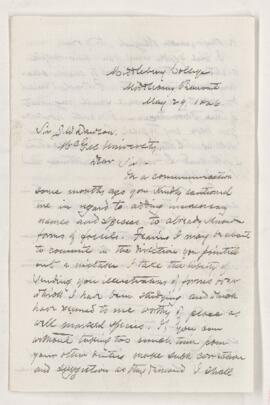 Middlebury College
Middlebury Vermont
May 29, 1886
Sir J. W. Dawson,
McGill University
Dear Sir,
In a communication
some months ago you kindly cautioned
me in regard to adding unnecessary
names and species to already known
forms of fossils. Fearing I may be about
to commit in the direction you pointed
out a mistake I take the liberty of
sending you illustrations of forms over
which I have been studying and which
have seemed to me worthy of place as
well marked species. If you can
without taking too much time from
your other duties make such correction
and suggestion as they demand I shall